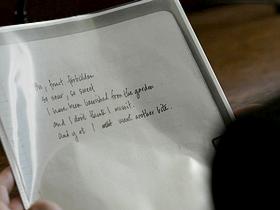 My fruit forbidden
so near, so sweet
I have been banished from the garden
and I don't think I miss it.
and yet I want another bite.